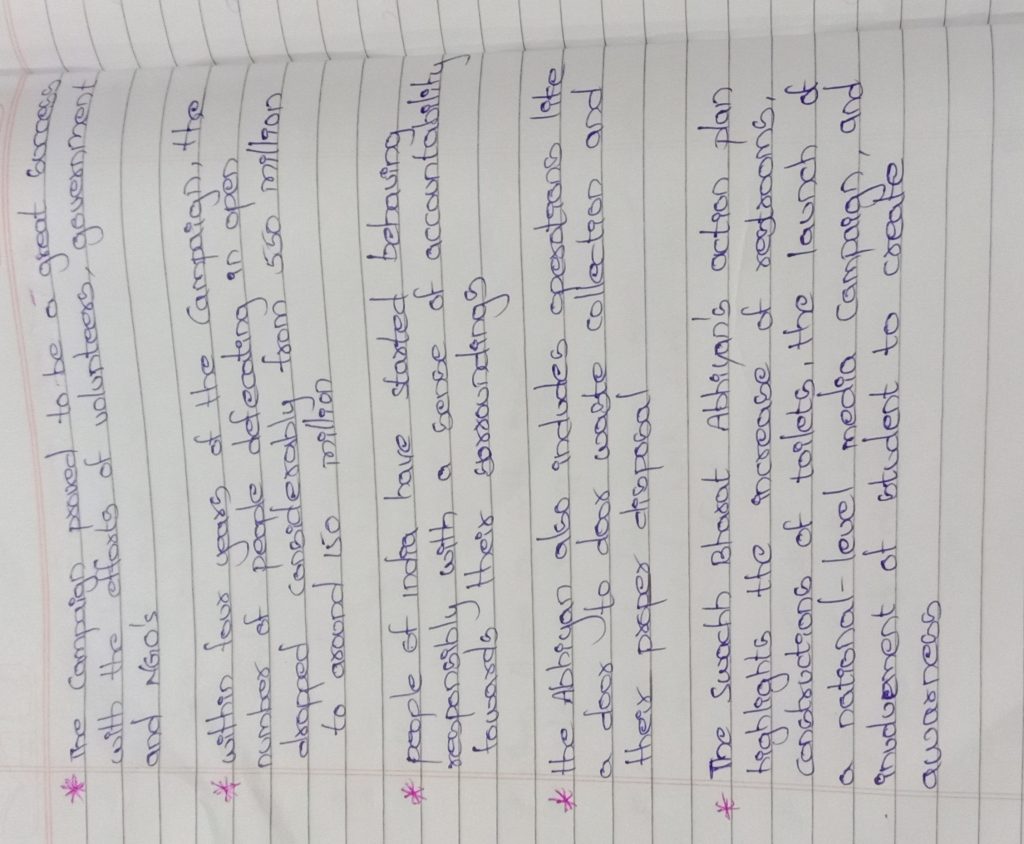 * The Campaign proved to be a great success
with the efforts of volunteers, government
and NGO's
* within four years of the Campaign, the
number of people defecating in open
dropped considerably from 550 million
to around 150 million
* people of india have started behaving
responsibly with a sense of accountability
towards their surroundings
* the Abhiyan also includes operations like
a door to door waste collection and
their proper disposal
* The Swachh Bharat Abhiyan's action plan
highlights the increase of restrooms,
constructions of toilets, the launch of
a national-level media campaign, and
invovement of student to create
awarness